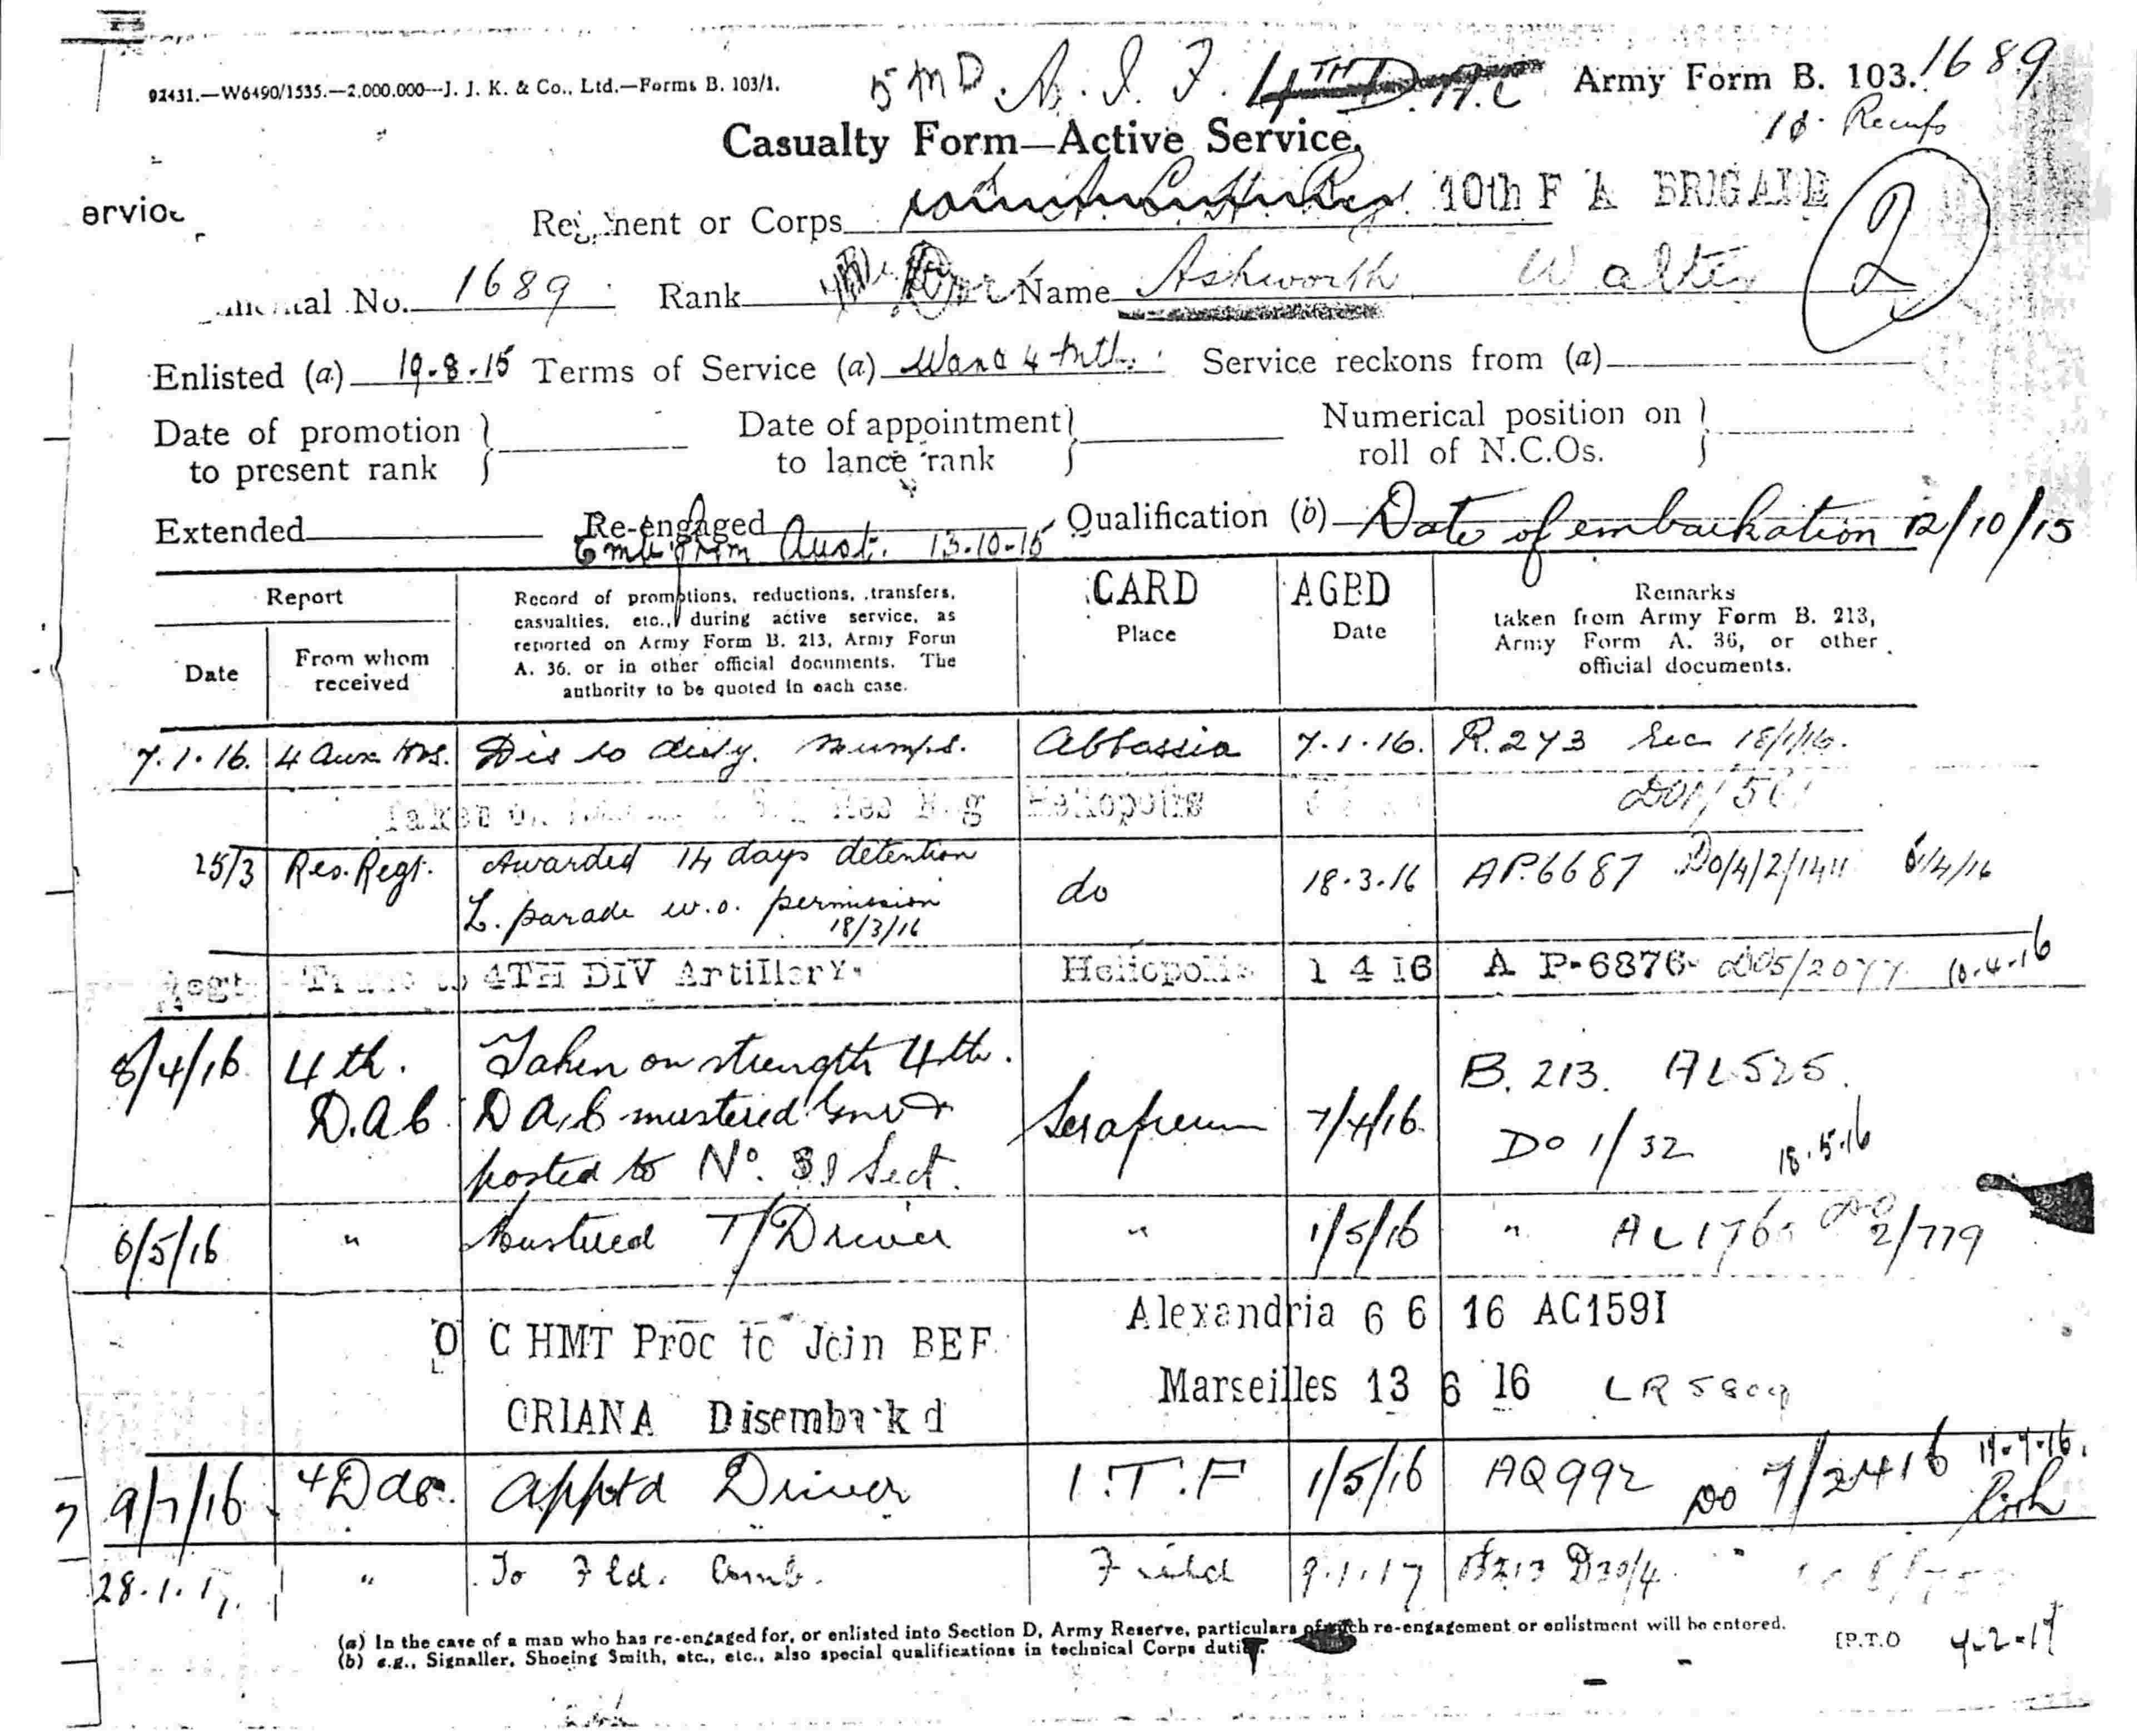 92431.—W6490/1535.—2,000,000—J. J. K. & Co., Ltd.—Forms B. 103/1.
5 MD. A. I. F. 4TH D.A.C Army Form B. 103. 1689
Casualty Form—Active Service.
ervice
Regiment or Corps 10th F A BRIGADE 2
al No. 1689 Rank Name Ashworth Walter
Enlisted (a) 19.8.15 Terms of Service (a) War & 4 mth. Service reckons from (a)
Date of promotion to present rank
Date of appointment to lance rank
Numerical position on roll of N.C.Os.
Extended Re-engaged Qualification (b) Date of embarkation 12/10/15
from Aust. 13.10.15
Report
Date
From whom received
Record of promotions, reductions, transfers,
casualties, etc., during active service, as
reported on Army Form B. 213, Army Form
A. 36, or in other official documents. The
authority to be quoted in each case.
CARD
Place
AGED
Date
Remarks
taken from Army Form B. 213,
Army Form A. 36, or other
official documents.
7.1.16. 4 Aux Hos. Dis to duty. Mumps. Abbassia 7.1.16. R.273 Rec 18/1/16.
Taken on Heliopolis
25/3 Res. Regt. Awarded 14 days detention do 18.3.16 AP.6687 6/4/16
L. parade w.o. permission
18/3/16
Regt Trans to 4TH DIV Artillery. Heliopolis 1 4 16 A P-6876- 10.4.16
8/4/16 4th. Taken on strength 4th. B. 213. AL525.
D.A.C. D A.C mustered Gnr & Serapeum 7/4/16. DO 1/32 18.5.16
posted to No. Sect.
6/5/16 " Mustered T/Driver " 1/5/16 " DO 2/779
O C HMT Proc to Join BEF Alexandria 6 6 16 AC1591
ORIANA Disembarkd Marseilles 13 6 16 LR
9/7/16 4 Dac. Apptd Driver I.T.F 1/5/16 AQ992 DO 7/2416
28.1.17. " To Fld. Amb. Field 9.1.17 B213 D30/4
(a) In the case of a man who has re-engaged for, or enlisted into Section D, Army Reserve, particulars of such re-engagement or enlistment will be entered.
(b) e.g., Signaller, Shoeing Smith, etc., etc., also special qualifications in technical Corps duties.
[P.T.O